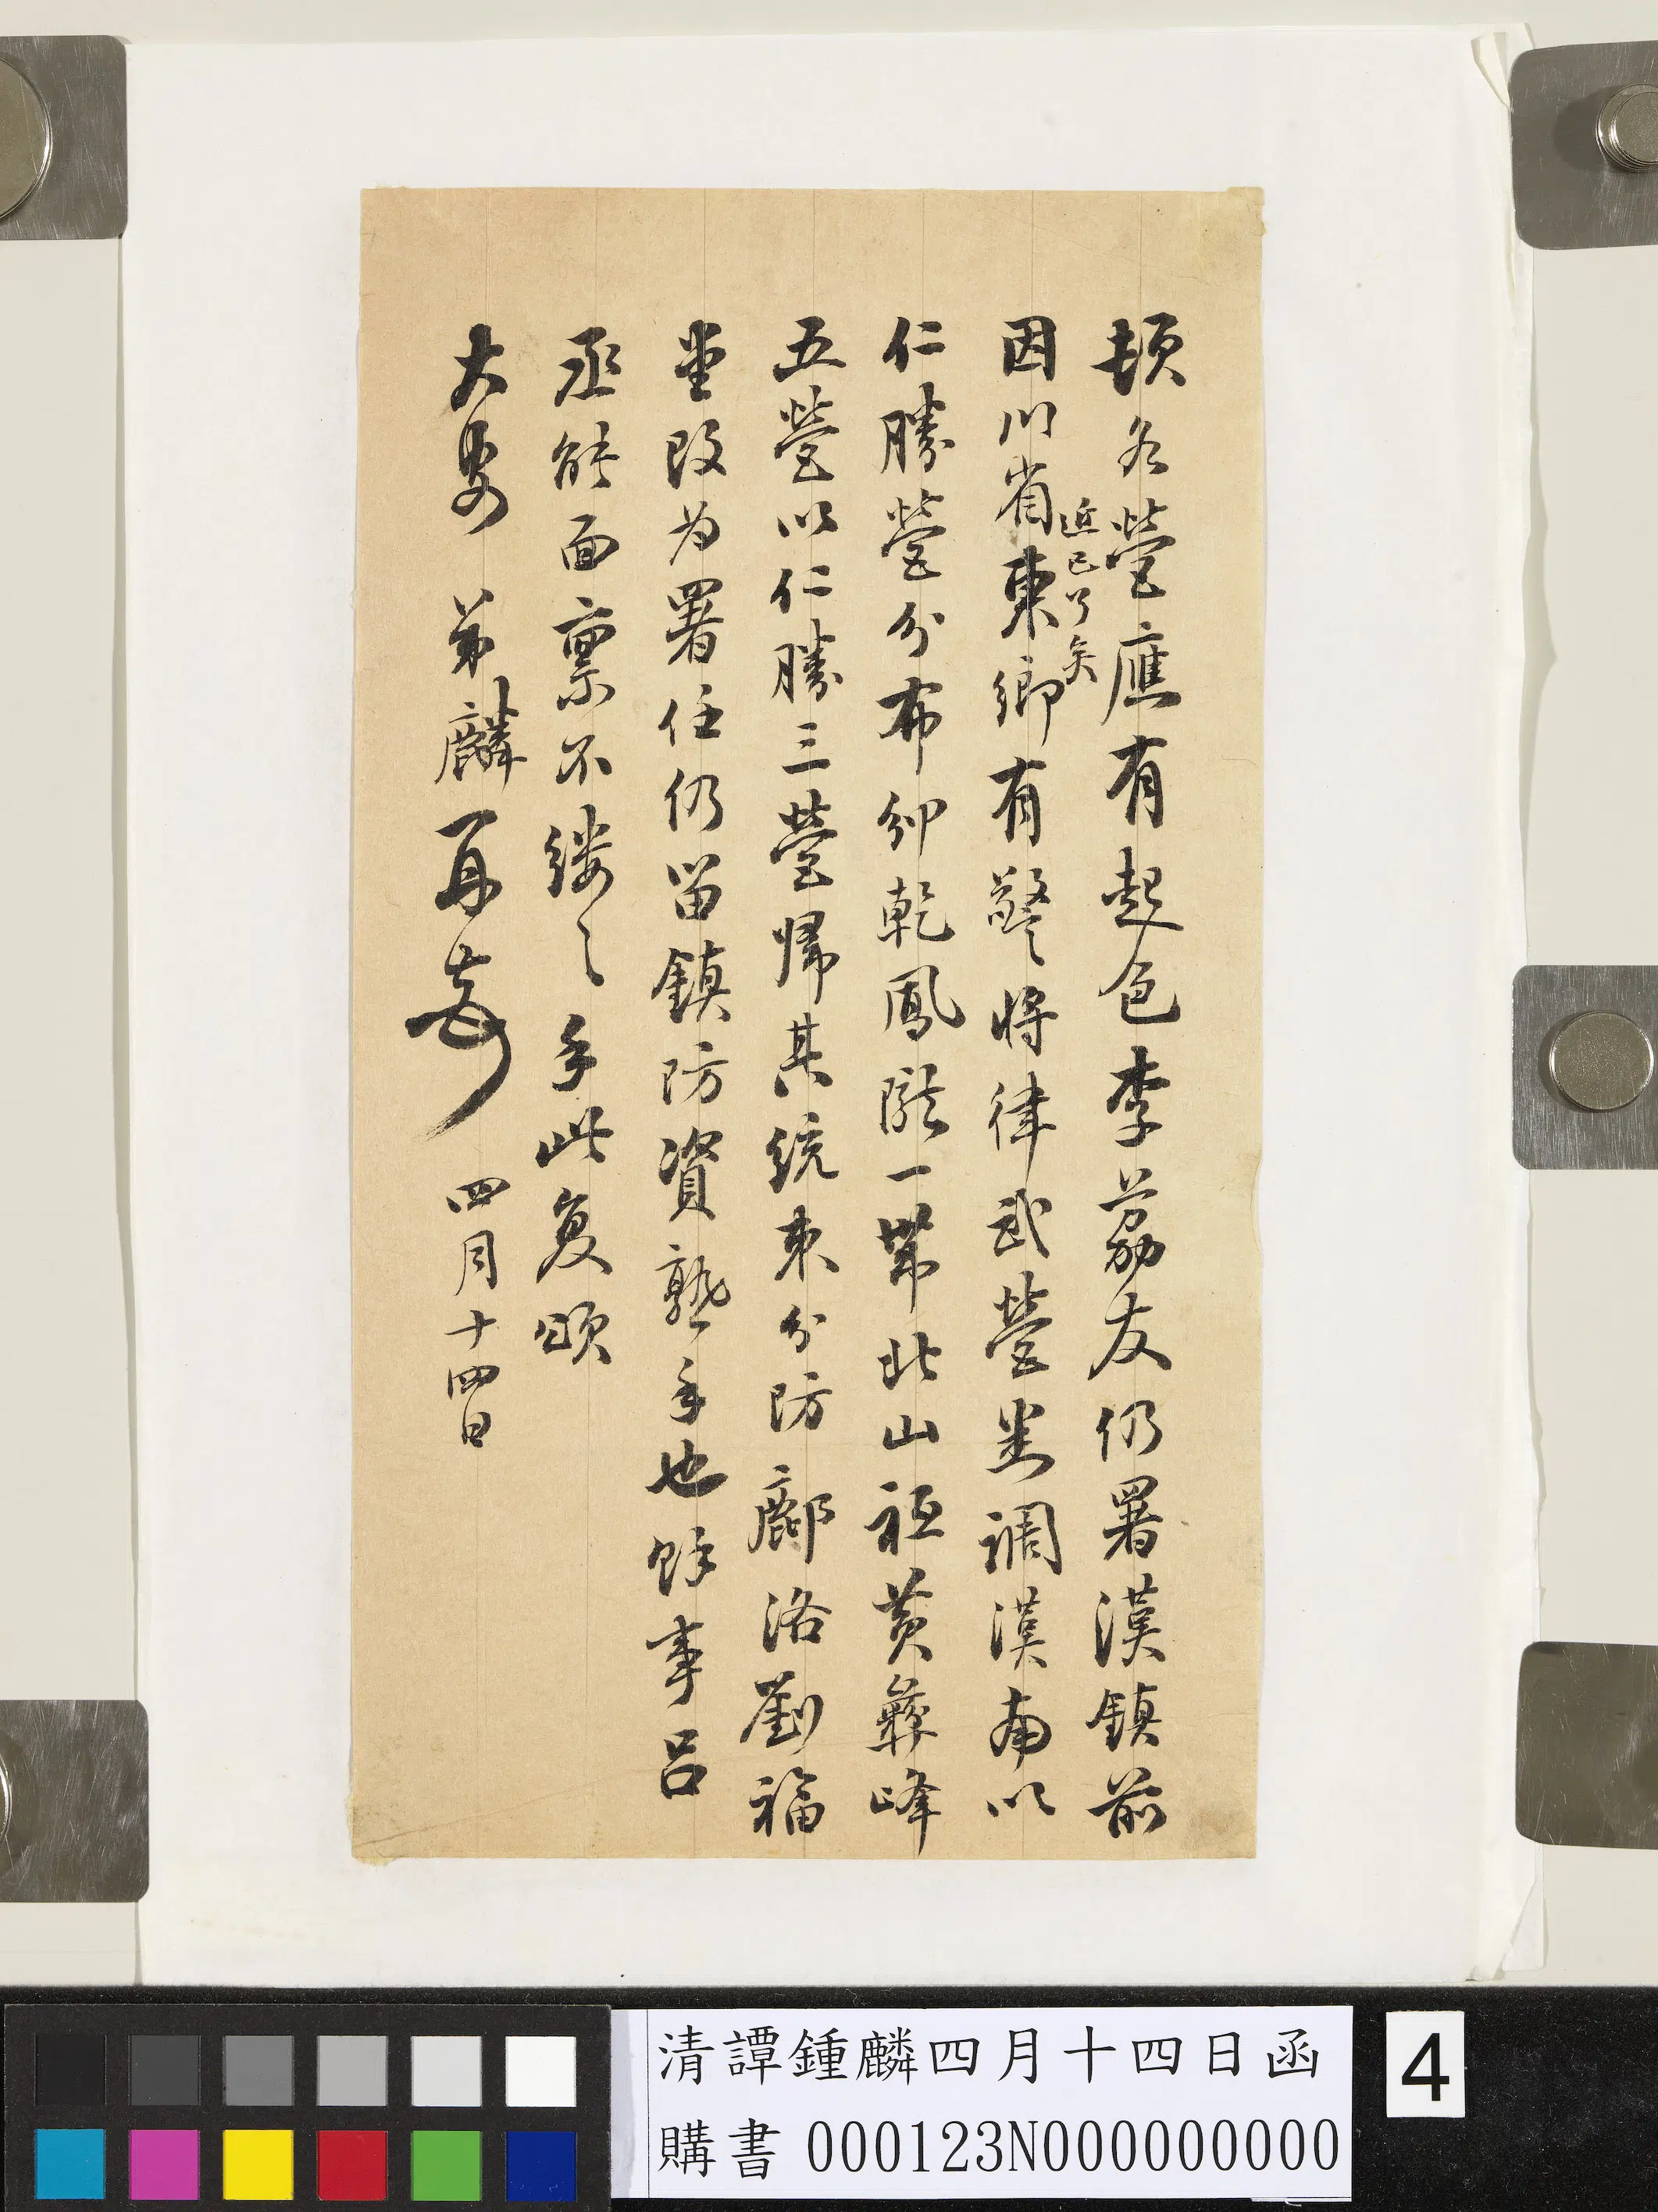 頓各營應有起色李荔友仍署漢鎮前
因川省東鄉有警將律武營悉調漢南以
近已了矣
仁勝營分布邠乾鳳隴一帶北山祗黃彝峰
五營以仁勝三營歸其統束分防鄜洛劉福
堂改為署任仍留鎮防資熟手也餘事呂
丞能面稟不縷縷手此复頌
大安 弟麟再安 四月十四日
清譚鍾麟四月十四日函
購書 000123N000000000
4